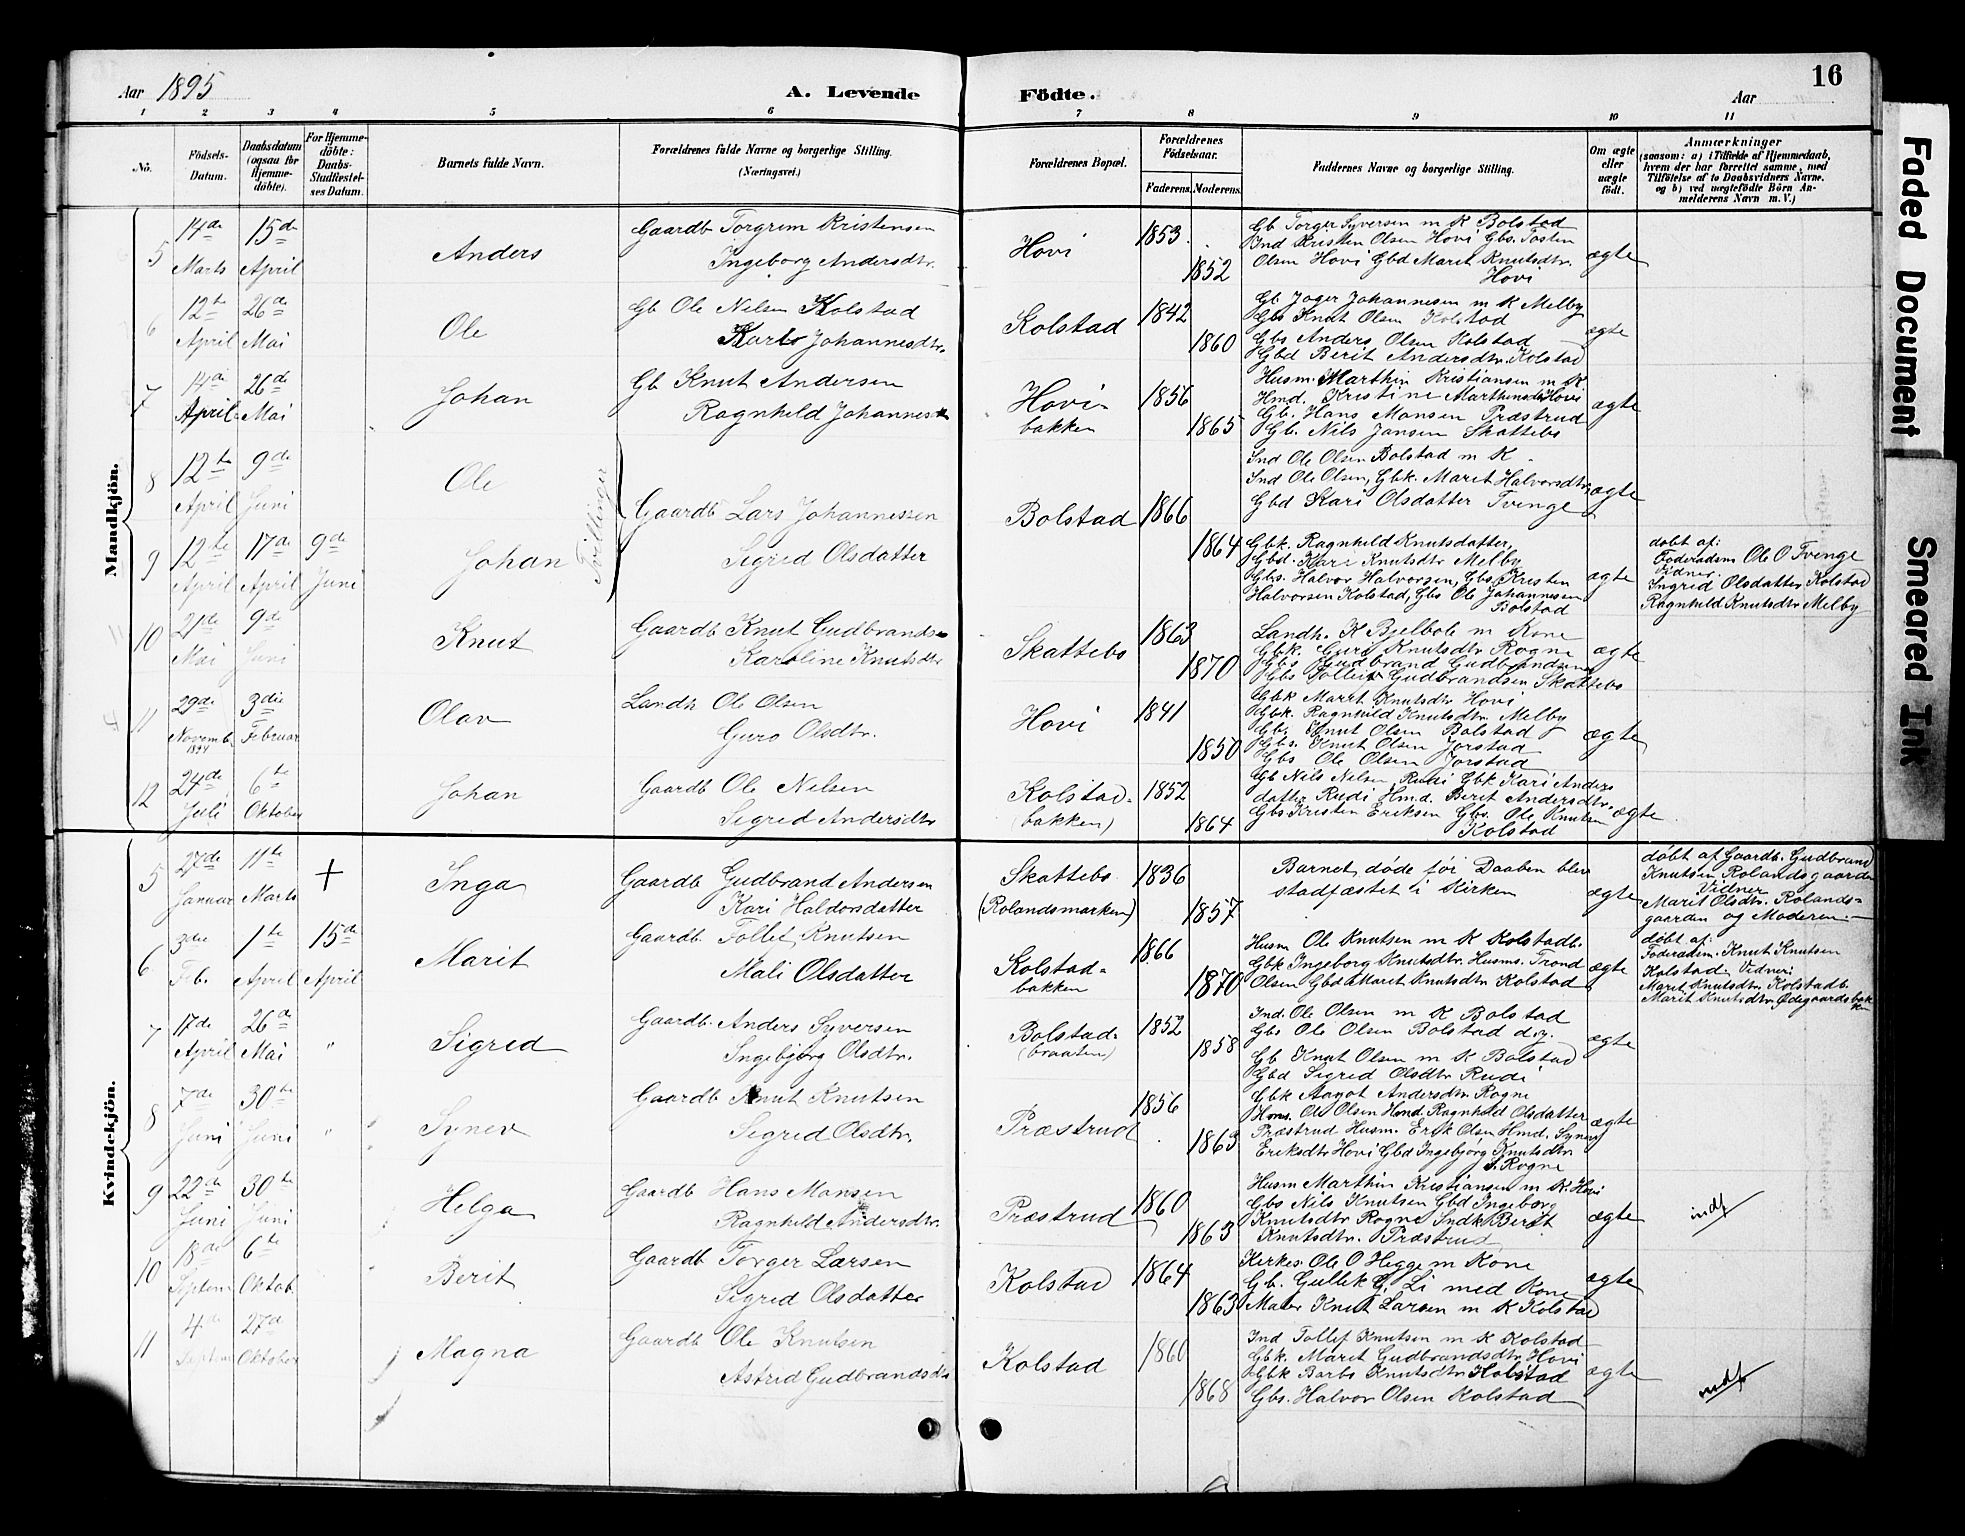 Aar 1895
A. Levende Födte.
16
Aar
1 2 3 4 5 6 7 8 9 10 11
No.
Födsels-Datum.
Daabsdatum (ogsaa for Hjemmedöbte).
For Hjemmedöbte: Daabs-Stadfæstelses Datum.
Barnets fulde Navn.
Forældrenes fulde Navne og borgerlige Stilling. (Næringsvei.)
Forældrenes Bopæl.
Forældrenes Födselsaar.
Faderens. Moderens.
Faddernes Navne og borgerlige Stilling.
Om ægte eller uægte födt.
Anmærkninger (saasom: a) i Tilfælde af Hjemmedaab, hvem der har forrettet samme, med Tilföielse af to Daabsvidners Navne, og b) ved uægtefödte Börn Anmelderens Navn m. V.)
Mandkjön.
5 14de Marts 15de April Anders
Gaardb Torgrim Kristensen
Ingeborg Andersdtr.
Hovi 1853 1852
Gb Torger Syversen m K Bolstad
Ind Kristen Olsen Hovi Gbs. Tosten
Olsen Hovi Gbd Marit Knutsdtr.
Hovi
ægte
6 12te April 26de Mai Ole
Gb Ole Nilsen Kolstad
Johannesdtr.
Kolstad 1842 1860
Gb Johannesen m K Melby
Gbs Knut Olsen Kolstad
Gbs Anders Olsen Kolstad
Gbd Berit Andersdtr. Kolstad
ægte
7 14de April 26de Mai Johan
Gb Knut Andersen
Ragnhild Johannes
Hovi-bakken 1856 1865
Husm. Marthin Kristiansen m K.
Hmd. Kristine Marthinsdtr Hovi
Gb. Hans Monsen Præstrud
Gb. Nils Jansen Skattebo
ægte
8 12te April 9de Juni Ole
Tvillinger
Gaardb Lars Johannessen
Sigrid Olsdatter
Bolstad 1866 1864
Ind Ole Olsen Bolstad m K
Ind Ole Olsen, Gbk. Marit Halvorsdtr,
Gbd Kari Olsdatter Tvenge
ægte
9 12te April 17de April 9de Juni Johan
Gbk. Ragnhild Knutsdatter,
Gbd. Kari Knutsdtr Melby
Gbs. Halvor Halvorsen, Gbs Kristen
Halvorsen Kolstad, Gbs Ole Johannesen
Bolstad
ægte
døbt af:
Føderaadsm Ole O Tvenge
Vidner.
Ingrid Olsdatter Kolstad
Ragnhild Knutsdtr Melby
10 21de Mai 9de Juni Knut
Gaardb Knut Gudbrands
Karoline Knutsdtr
Skattebo 1863 1870
Landh. K Bjelbole m Kone
Gbk. Guro Knutsdtr Rogne
Gbs Gudbrand Gudbrandsen
Gbs Tollef Gudbrandsen Skattebo
ægte
11 29de Novemb. 1894 3die Februar Olav
Landh Ole Olsen
Guro Olsdtr.
Hovi 1841 1850
Gbk Marit Knutsdtr Hovi
Gbk. Ragnhild Knutsdtr. Melby
Gb. Knut Olsen Bolstad
Gbs. Knut Olsen Jorstad
Gbs Ole Olsen Jorstad
ægte
12 24de Juli 6te Oktober Johan
Gaardb Ole Nilsen
Sigrid Andersdtr
Kolstad-(bakken) 1852 1864
Gb Nils Nilsen Rudi Gbk Kari Anders
datter Rudi Hmd. Berit Andersdtr.
Gbs Kristen Eriksen Gbs. Ole Knutsen
Kolstad
ægte
Kvindekjön.
5 27de Januar 11te Marts + Inga
Gaardb Gudbrand Andersen
Kari Haldorsdatter
Skattebo (Rolandsmarken) 1836 1857
Barnet døde før Daaben blev
stadfæstet i Kirken
ægte
døbt af Gaardb. Gudbrand
Knutsen Rolandsgaarden
Vidner
Marit Olsdtr. Rolands-
gaarden og Moderen.
6 3die Feb. 1te April 15de April Marit
Gaardb. Tollef Knutsen
Mali Olsdatter
Kolstad-bakken 1866 1870
Husm Ole Knutsen m K Kolstadb.
Gbk Ingeborg Knutsdtr. Husms. Trond
Olsen Gbd Marit Knutsdtr Kolstad
ægte
døbt af:
Føderadsm. Knut Knutsen
Kolstad. Vidner:
Marit Knutsdtr. Kolstadb.
Marit Knutsdtr. Ødegaardsbakken
7 17de April 26de Mai " Sigrid
Gaardb. Anders Syversen
Ingebjørg Olsdtr.
Bolstad-(braaten) 1852 1858
Ind. Ole Olsen m K Bolstad
Gbs Ole Olsen Bolstad d.y.
Gb Knut Olsen m K Bolstad
Gbd Sigrid Olsdtr Rudi
ægte
8 7de Juni 30te Juni " Synev
Gaardb Knut Knutsen
Sigrid Olsdtr.
Præstrud 1856 1863
Gbk Aagot Andersdtr Rogne
Hms. Ole Olsen Hmd. Ragnhild Olsdatter
Præstrud Husm. Erik Olsen Hmd. Synev
Eriksdtr Hovi Gbd Ingebjørg Knutsdtr
S. Rogne
ægte
9 22de Juni 30te Juni Helga
Gaardb Hans Monsen
Ragnhild Andersdtr.
Præstrud 1860 1863
Husm Marthin Kristiansen m K. Hovi
Gbs Nils Knutsen Gbd Ingeborg
Knutsdtr Rogne Indk Berit
Knutsdtr. Præstrud
ægte
indf
10 18de Septem 6te Oktob. Berit
Gaardb Torger Larsen
Sigrid Olsdatter
Kolstad 1864 1863
Kirkes. Ole O Hegge m Kone
Gb. Gullik G. Li med Kone
Maler Knut Larsen m K Kolstad
ægte
11 4de Septem 27de Oktober Magna
Gaardb Ole Knutsen
Astrid Gudbrandsdtr
Kolstad 1860 1868
Ind Tollef Knutsen m K Kolstad
Gbk. Marit Gudbrandsdtr. Hovi
Gbk Barbo Knutsdtr Kolstad
Gbs. Halvor Olsen Kolstad
ægte
indf
Faded Document
Smeared Ink